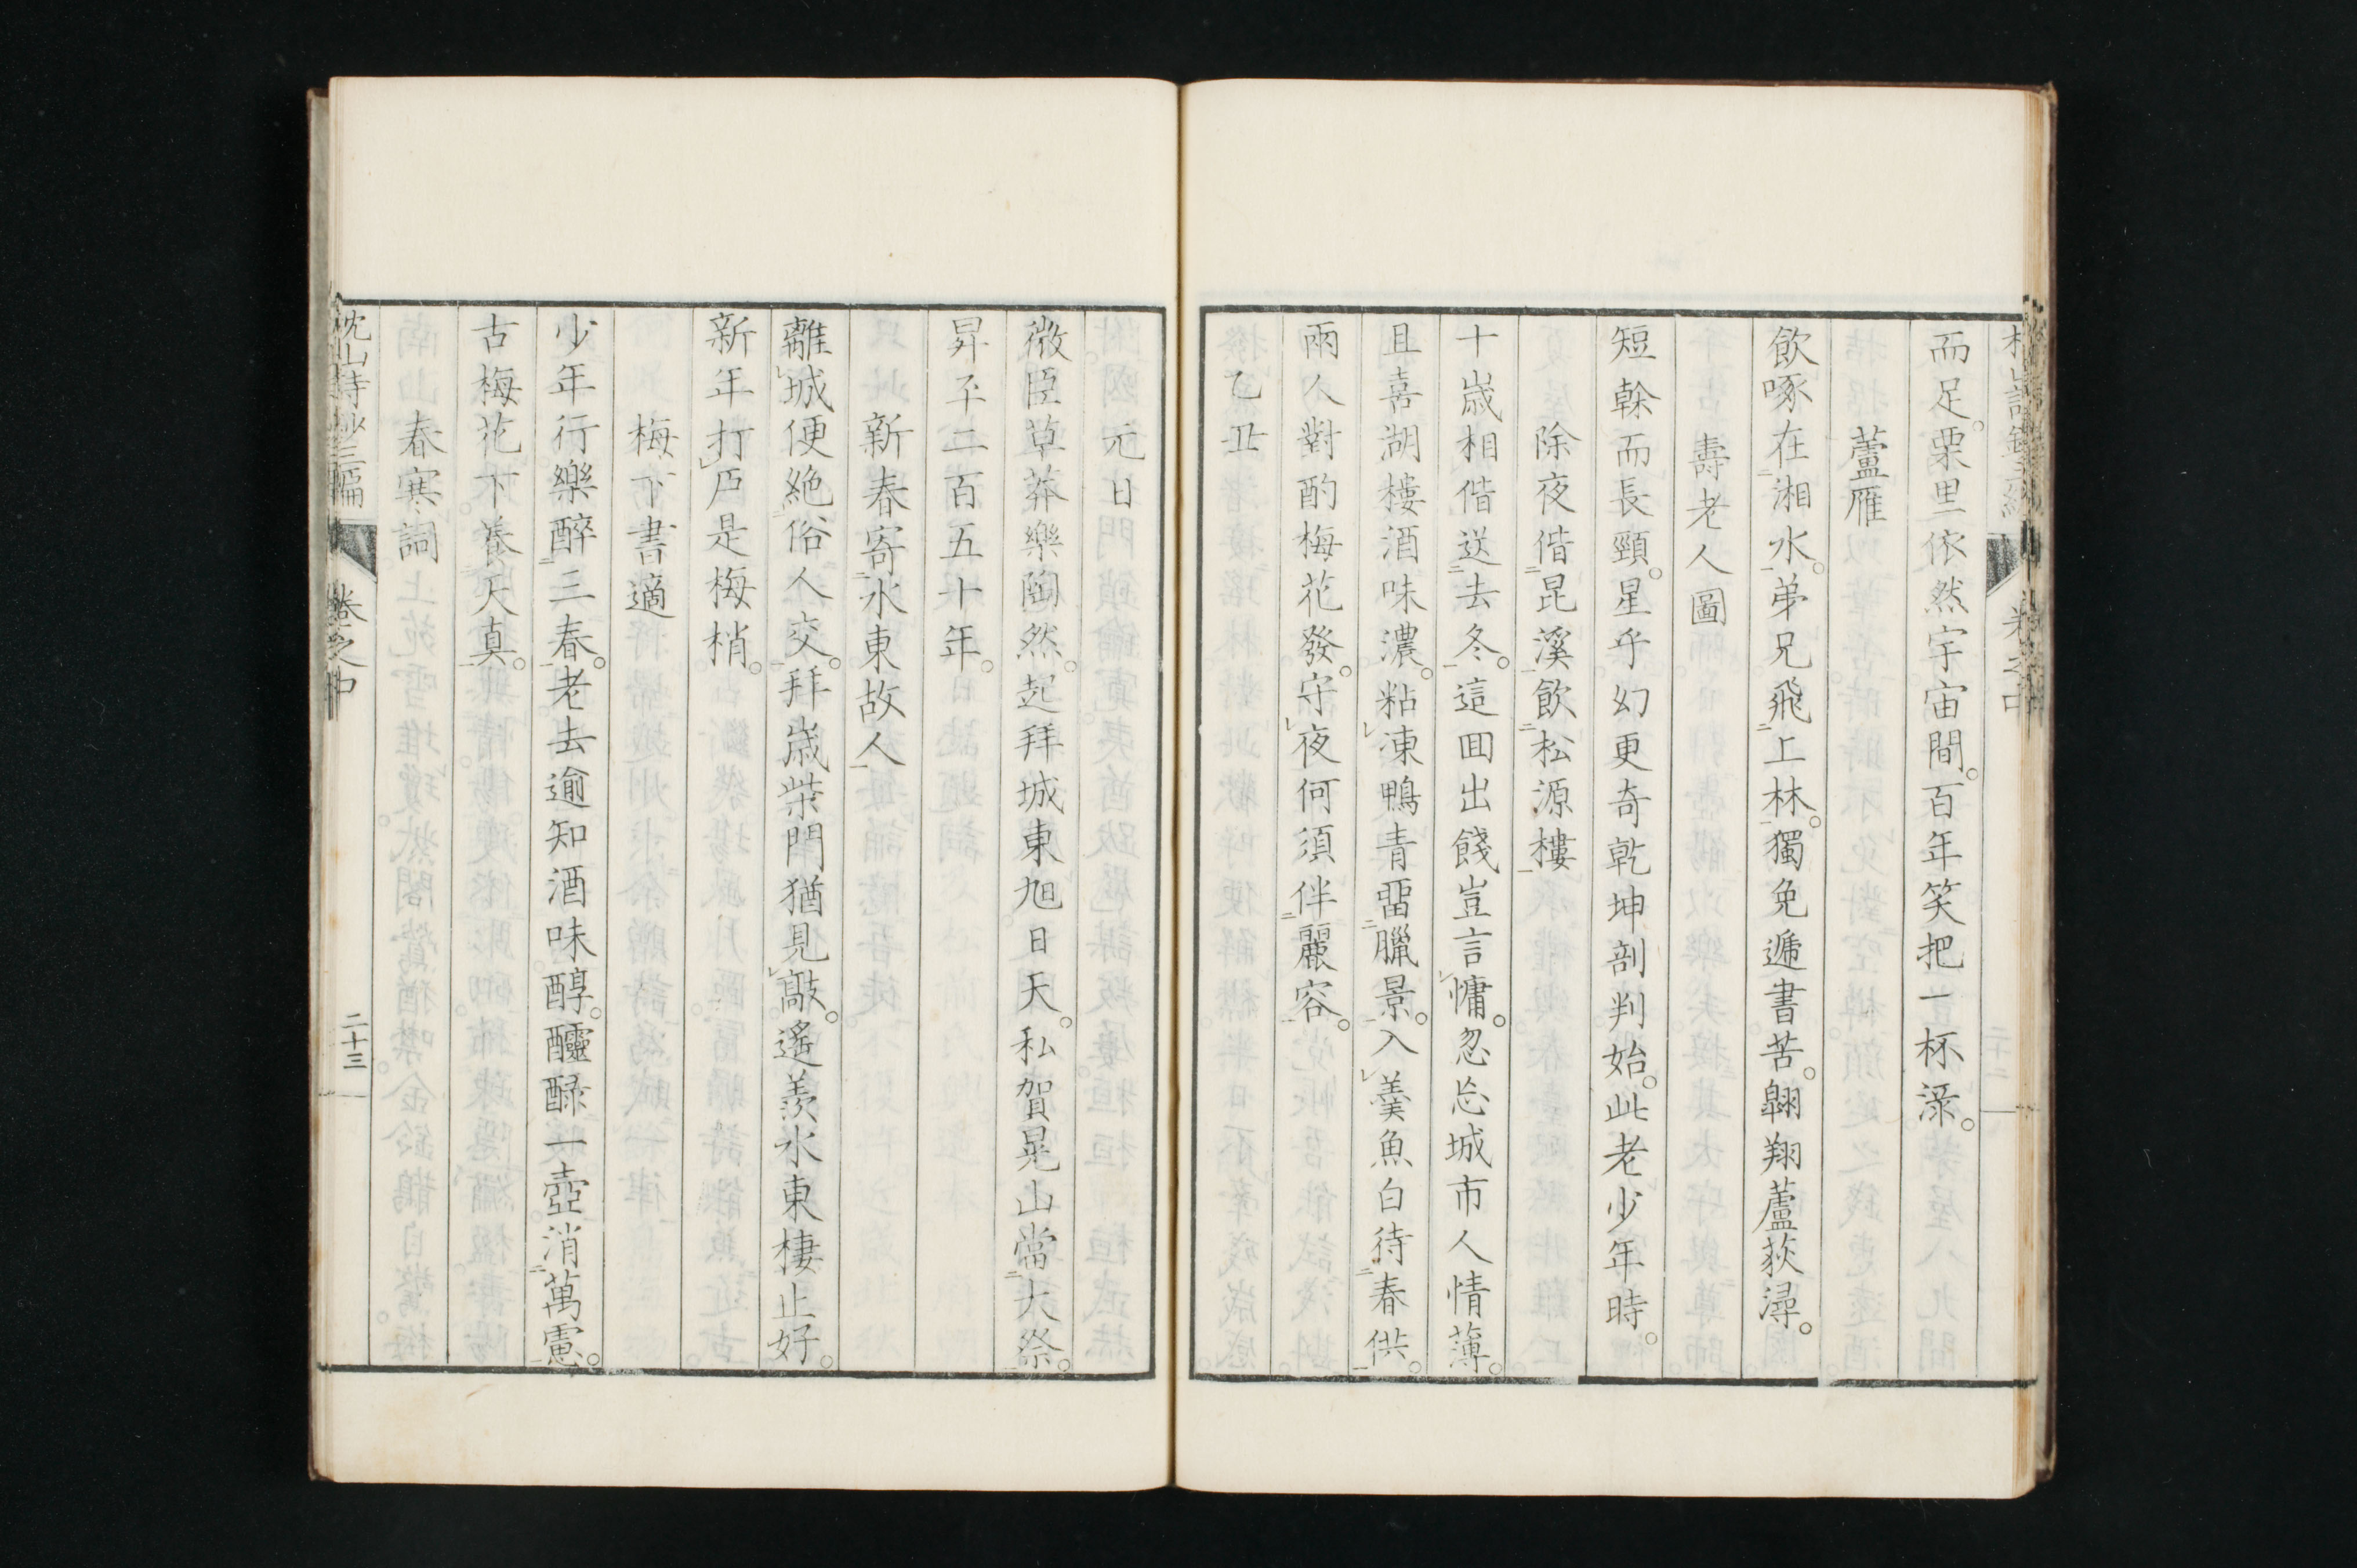 而足。栗里依然宇宙間。百年笑把一杯淥。
蘆雁
飲啄在湘水。弟兄飛上林。獨免遞書苦。翺翔蘆荻潯。
壽老人圖
短榦而長頸。星乎幻更奇乾坤剖判始。此老少年時。
除夜偕昆溪飲松源樓
十歳相偕送去冬。這回出餞豈言慵。忽忘城市人情薄。
且喜湖樓酒味濃。粘凍鴨青畱臘景。入羹魚白待春供。
兩人對酌梅花發。守夜何須伴麗容。
乙丑
元日
微臣草莽樂陶然。起拜城東旭日天。私賀晃山當大祭。
昇平二百五十年。
新春寄水東故人
離城便絶俗人交。拜歳柴門猶見敲。遙羨水東棲止好。
新年打戸是梅梢。
梅下書適
少年行樂醉三春。老去逾知酒味醇。醽醁一壺消萬慮。
古梅花下養天真。
春寒詞
枕山詩抄三編
卷之中
二十三